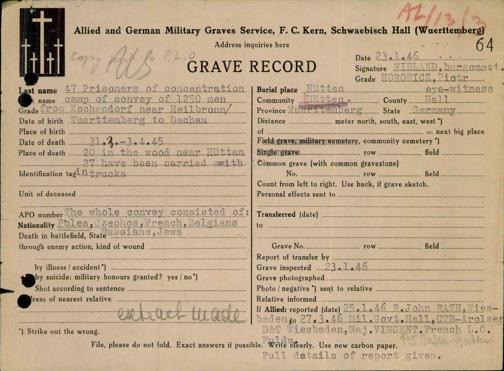 AL/13/3
64
Allied and German Military Graves Service, F. C. Kern, Schwaebisch Hall (Wuerttemberg)
Address inquiries here
GRAVE RECORD
Date 23.1.46
Signature WIELAND, burgomast.
Grade HOROWICZ, Piotr
eye-witness
Last name 47 Prisoners of concentration
name camp of convey of 1250 men
grade from Kochendorf near Heilbronn/
Date of birth Wuerttemberg to Dachau
Place of birth
Date of death 31.3.-3.4.45
Place of death 20 in the wood near Hütten
27 have been carried with
Identification tag in trucks
Unit of deceased
APO number The whole convey consisted of:
Nationality Poles, Czechos, French, Belgians
Death in battlefield, State Russians, Jews
through enemy action, kind of wound
by illness / accident*)
by suicide: military honours granted? yes / no*)
Shot according to sentence
dress of nearest relative
extract made
*) Strike out the wrong.
Burial place Hütten
Community Hütten County Hall
Province Wuerttemberg State Germany
Distance meter north, south, east, west*)
of next big place
Field grave, military cemetery, community cemetery*)
Single grave row field
Common grave (with common gravestone)
No. row field
Count from left to right. Use back, if grave sketch.
Personal effects sent to
Transferred (date)
to
Grave No. row field
Report of transfer by
Grave inspected 23.1.46
Grave photographed
Photo / negative*) sent to relative
Relative informed
If Allied: reported (date) 25.1.46 R.John RATH, Wies-
baden, to 27.3.46 Mil.Govt.Hall, CTB-Arolsen
D&T Wiesbaden, Maj. VINCENT, French L.O.
Fulda
File, please do not fold. Exact answers if possible. Write clearly. Use new carbon paper.
Full details of report given.